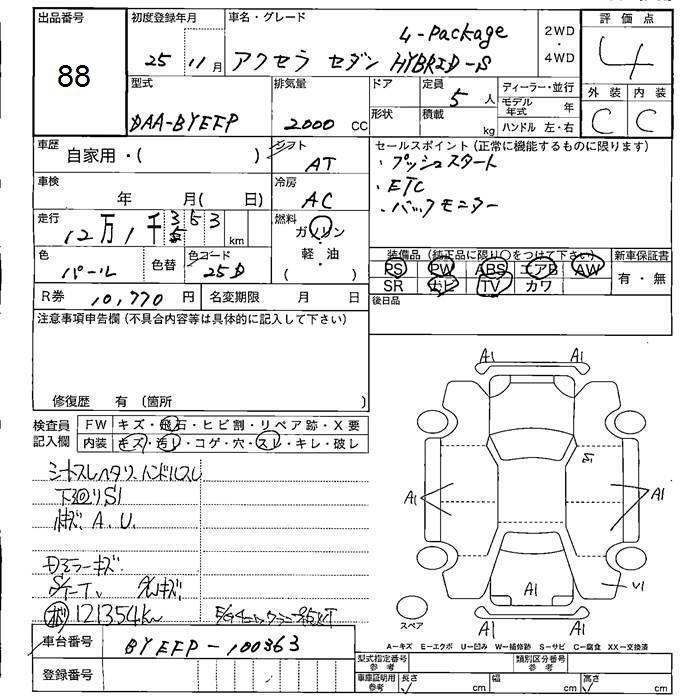 出品番号
88
初度登録年月
25 11月
車名・グレード
アクセラ セダン HYBRID-S
L-Package
2WD
・
4WD
評価点
4
外装 内装
C C
型式
DAA-BYEFP
排気量
2000 CC
ドア
形状
定員
5人
積載
kg
ディーラー・並行
モデル年式 年
ハンドル 左・右
車歴
自家用・( )
シフト
AT
セールスポイント(正常に機能するものに限ります)
・プッシュスタート
・ETC
・バックモニター
車検
年 月( 日)
冷房
AC
走行
12万1千353 km
燃料
ガソリン
・
軽・油
( )
色
パール
色替
色コード
25D
装備品(純正品に限り○をつけて下さい)
PS PW ABS エアB AW
SR ナビ TV カワ
新車保証書
有・無
R券 10,770円
名変期限 月 日
後日品
注意事項申告欄(不具合内容等は具体的に記入して下さい)
修復歴 有 〔箇所 〕
検査員
記入欄
FW キズ・飛石・ヒビ割・リペア跡・X要
内装 キズ・汚レ・コゲ・穴・スレ・キレ・破レ
シートスレヘタリ、ハンドルスレ
下回りS1
小キズ A.U.
Dミラーキズ
121354km
A1 A1
A1
A1
A1
A1 A1
スペア
A-キズ E-エクボ U-凹み W-補修跡 S-サビ C-腐食 XX-交換済
車台番号
BYEFP-100363
登録番号
型式指定番号
参考
類別区分番号
参考
車庫証明用
参考
長さ cm
幅 cm
高さ cm